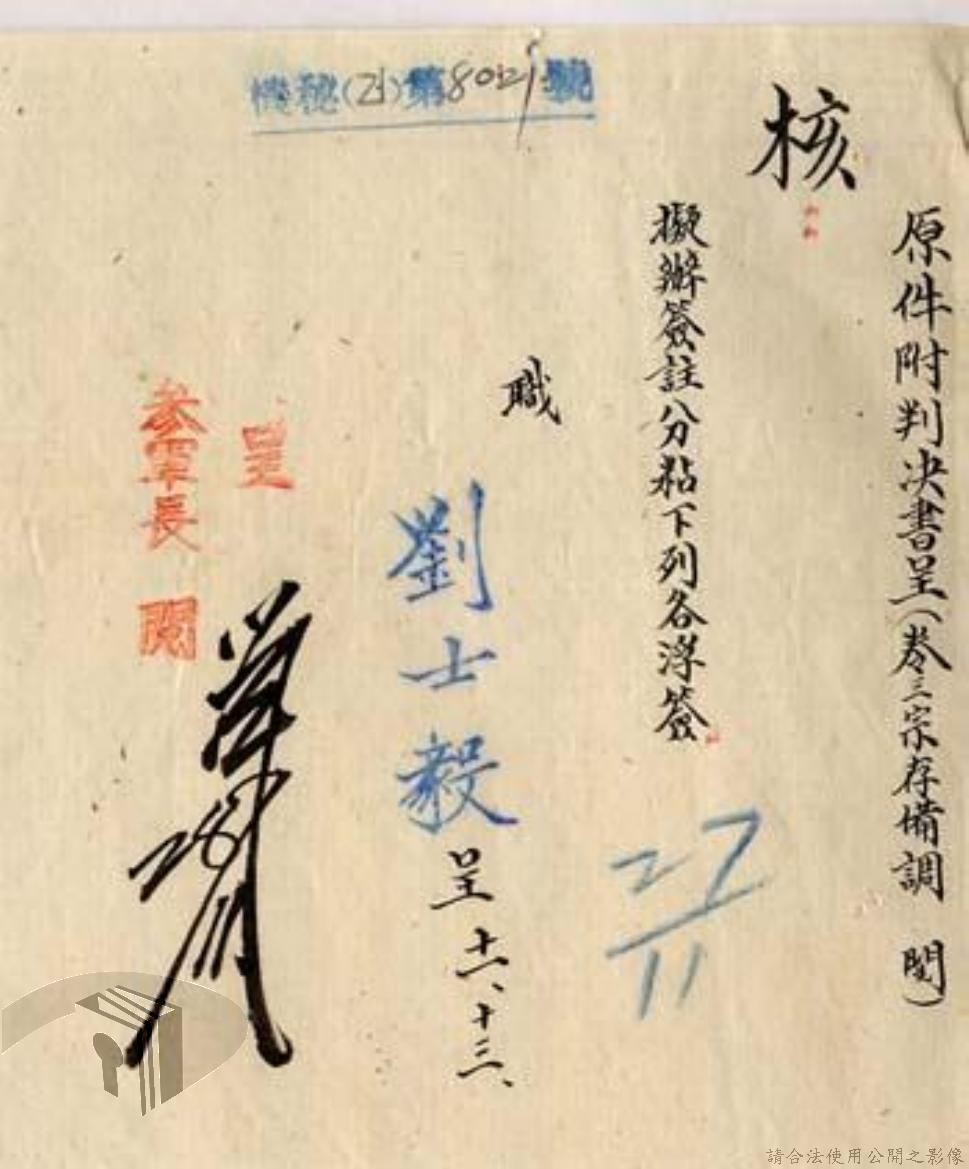 機秘(乙)第8021號
原件附判決書呈(卷三宗存備調 閱)
核
擬辦簽註八分粘下列各浮簽
27/11
職
劉士毅呈 十一、十三、
呈
參軍長 閱
請合法使用公開之影像